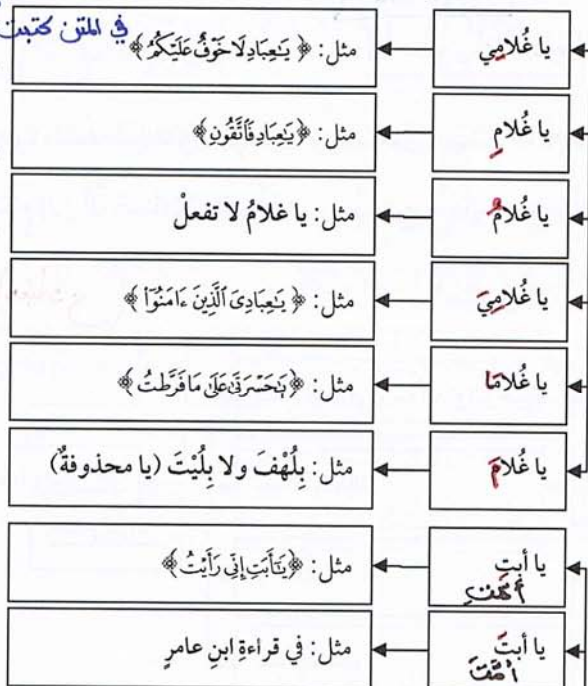 في المتن كتبت
يا غُلامِي
مثل: ﴿ يَٰعِبَادِ لَا خَوْفٌ عَلَيْكُمُ ﴾
يا غُلامِ
مثل: ﴿يَٰعِبَادِ فَاتَّقُونِ﴾
يا غُلامُ
مثل: يا غلامُ لا تفعلْ
يا غُلامِيَ
مثل: ﴿ يَٰعِبَادِىَ ٱلَّذِينَ ءَامَنُوٓا۟ ﴾
يا غُلامَا
مثل: ﴿يَٰحَسْرَتَىٰ عَلَىٰ مَا فَرَّطتُ ﴾
يا غُلامَ
مثل: بِلَهْفَ ولا بِلَيْتَ (يا محذوفةٌ)
يا أبتِ
أمتِ
مثل: ﴿يَٰٓأَبَتِ إِنِّى رَأَيْتُ ﴾
يا أبتَ
أمتَ
مثل: في قراءةِ ابنِ عامرٍ